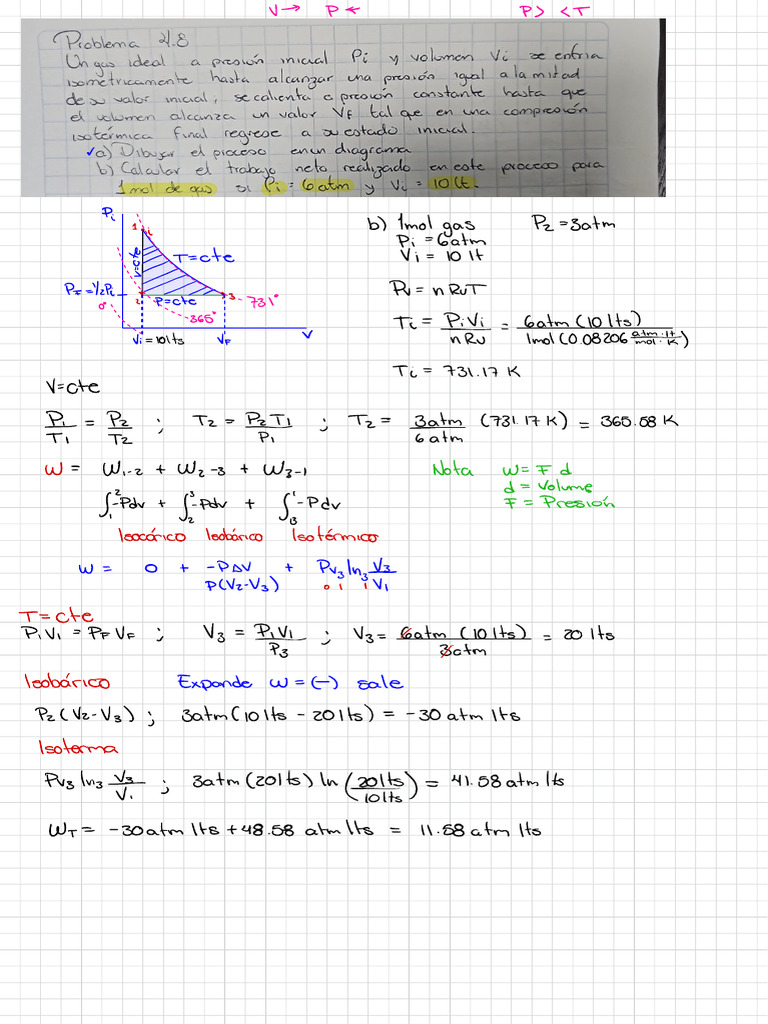 V→ P← P> <T
Problema 4.8
Un gas ideal a presión inicial Pi y volumen Vi se enfria
isometricamente hasta alcanzar una presión igual a la mitad
de su valor inicial, se calienta a presión constante hasta que
el volumen alcanza un valor VF tal que en una compresión
isotérmica final regrese a su estado inicial.
✓a) Dibujar el proceso en un diagrama
b) Calcular el trabajo neto realizado en este proceso para
1mol de gas si Pi = 6 atm y Vi = 10 lt.
Pi
1 i
V=cte
T=cte
PF=½Pi
2 P=cte 3 - 731°
0°
365°
Vi=10lts VF V
b) 1mol gas P2=3atm
Pi =6atm
Vi = 10 lt
Pv = nRuT
Ti = PiVi / nRu = 6atm (10 lts) / 1mol (0.08206 atm·lt / mol·K)
Ti = 731.17 K
V=cte
P1/T1 = P2/T2 ; T2 = P2T1/P1 ; T2= 3atm/6atm (731.17K) = 365.58 K
W = W1-2 + W2-3 + W3-1
∫₁² -Pdv + ∫₂³ -Pdv + ∫₃¹ -Pdv
Isocórico Isobárico Isotérmico
Nota W= F d
d = Volume
F = Presión
W = 0 + -PΔV + Pv3 ln3 V3/V1
P(V2-V3) 0 1 1
T=cte
P1V1 = PFVF ; V3 = P1V1/P3 ; V3= 6atm (10lts)/3atm = 20 lts
Isobárico Expande W=(-) sale
P2(V2-V3) ; 3atm(10lts - 20lts) = -30 atm lts
Isoterma
PV3 ln3 V3/V1 ; 3atm (20lts) ln (20lts/10lts) = 41.58 atm lts
WT = -30atm lts +48.58 atm lts = 11.58 atm lts